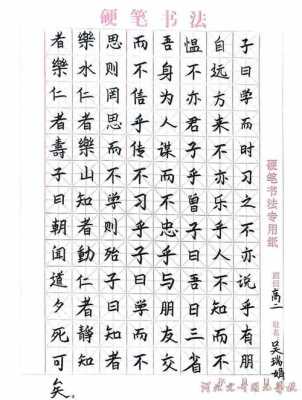 硬笔书法
子曰学而时习之不亦说乎有朋
自远方来不亦乐乎人不知而不
愠不亦君子乎曾子曰吾日三省
吾身为人谋而不忠乎与朋友交
而不信乎传不习乎子曰学而不
思则罔思而不学则殆子曰知者
樂水仁者樂山知者動仁者静知
者樂仁者壽子曰朝闻道夕死可
矣。
硬笔书法专用纸
班级 高二 姓名 吴瑞娟